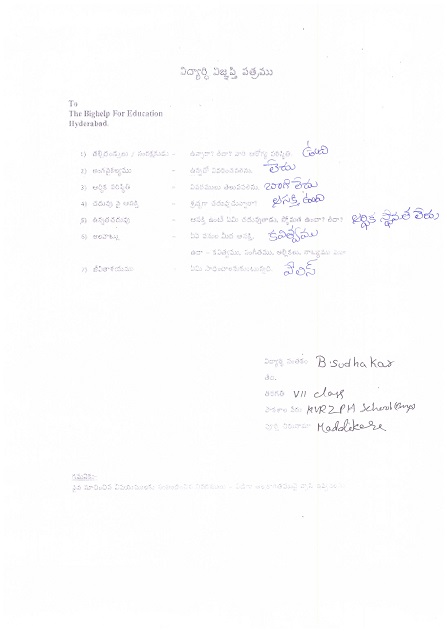 విద్యార్థి విజ్ఞప్తి పత్రము
To
The Bighelp For Education
Hyderabad.
1) తల్లిదండ్రులు / సంరక్షకుడు - ఉన్నారా? లేదా? వారి ఆరోగ్య పరిస్థితి ఉంది
2) అంగవైకల్యము - ఉన్నచో వివరించవలెను లేదు
3) ఆర్థిక పరిస్థితి - వివరములు తెలుపవలెను బాగా లేదు
4) చదువు పై ఆసక్తి - శ్రద్ధగా చదువుచున్నారా? ఆసక్తి ఉంది
5) ఉన్నత చదువు - ఆసక్తి ఉంటే ఏమి చదువుతారు, స్తోమత ఉందా? లేదా? ఆర్థిక స్తోమత లేదు
6) అలవాట్లు - ఏ పనుల మీద ఆసక్తి కవిత్వము
ఉదా - కవిత్వము, సంగీతము, ఆర్టికలు, నాట్యము
7) జీవితాశయము - ఏమి సాధించాలనుకుంటున్నారు పోలీస్
విద్యార్థి సంతకం B. Sudhakar
తరగతి VII class
పాఠశాల పేరు KVR Z P H School (Boys)
పూర్తి చిరునామా Maddikera
గమనిక: